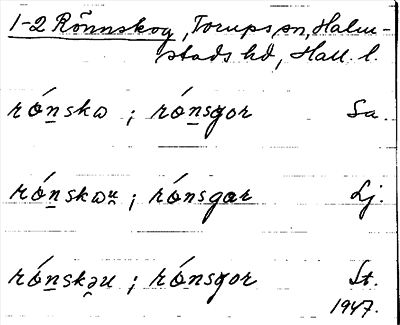 1-2 Rönnskog, Torups sn, Halm-
stads hd, Hall. l.
rón̲skɷ ; rón̲sgor Sa.
rón̲skɷu̯ ; rónsgar Lj.
rón̲skə̯u ; rón̲sgor St.
1947.